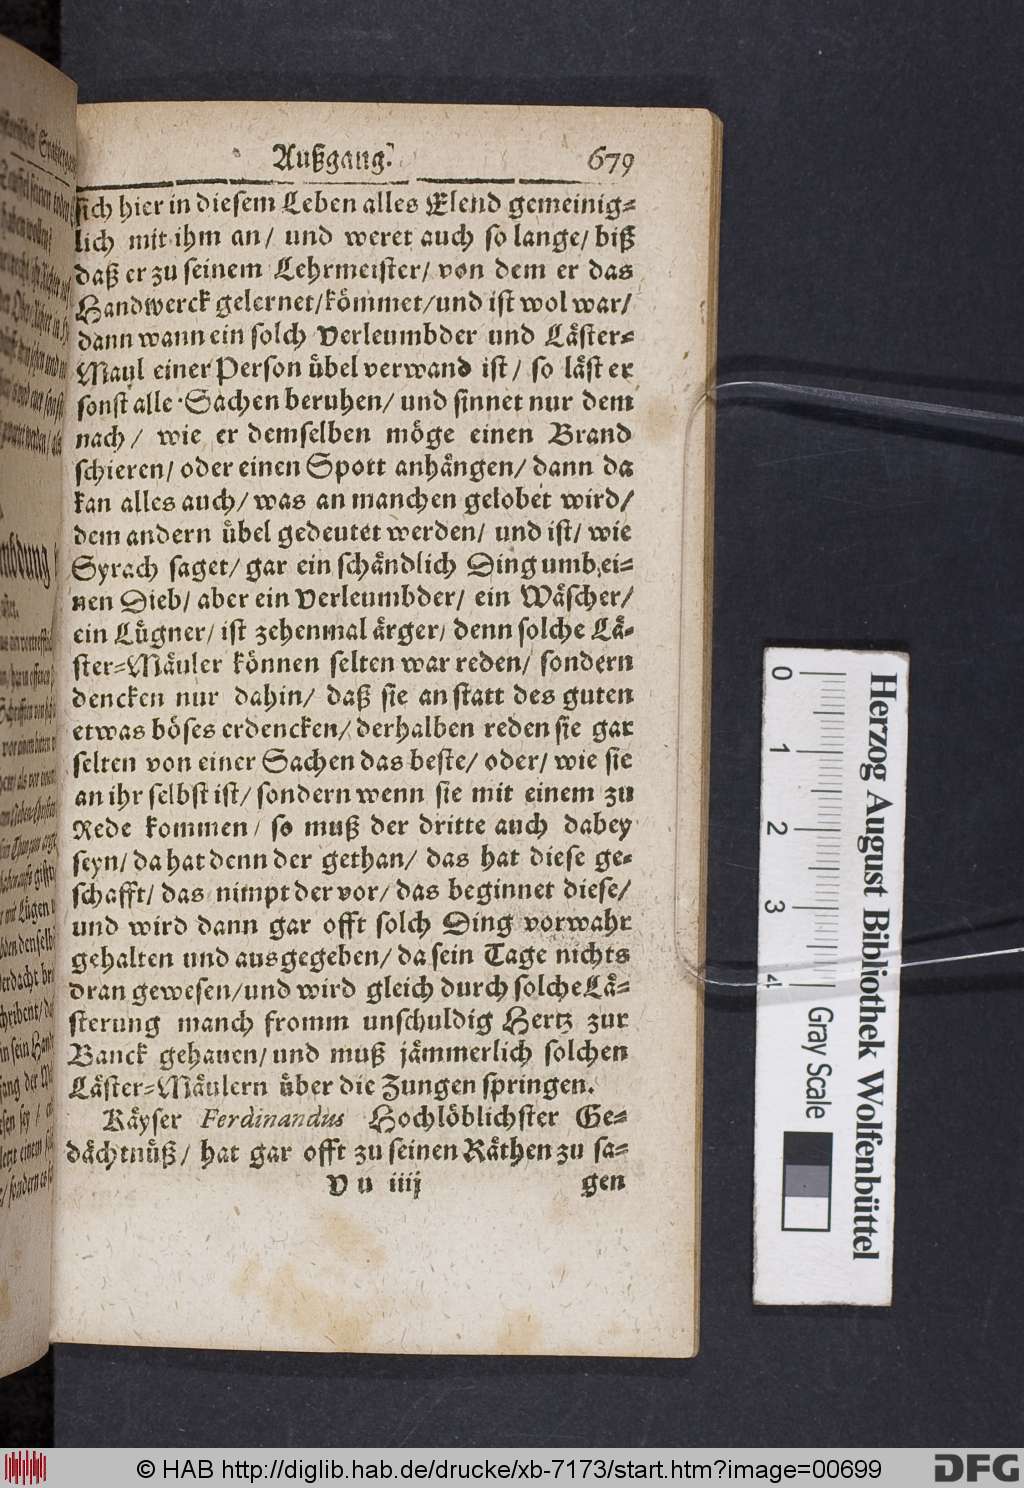 Außgang. 679
sich hier in diesem Leben alles Elend gemeinig-
lich mit ihm an/ und weret auch so lange/ biß
daß er zu seinem Lehrmeister/ von dem er das
Handwerck gelernet/kömmet/und ist wol war/
dann wann ein solch Verleumbder und Läster-
Maul einer Person übel verwand ist/ so läst er
sonst alle Sachen beruhen/ und sinnet nur dem
nach/ wie er demselben möge einen Brand
schieren/ oder einen Spott anhängen/ dann da
kan alles auch/ was an manchen gelobet wird/
dem andern übel gedeutet werden/ und ist/ wie
Syrach saget/ gar ein schändlich Ding umb ei-
nen Dieb/ aber ein Verleumbder/ ein Wäscher/
ein Lügner/ ist zehenmal ärger/ denn solche Lä-
ster-Mäuler können selten war reden/ sondern
dencken nur dahin/ daß sie an statt des guten
etwas böses erdencken/ derhalben reden sie gar
selten von einer Sachen das beste/ oder/ wie sie
an ihr selbst ist/ sondern wenn sie mit einem zu
Rede kommen/ so muß der dritte auch dabey
seyn/ da hat denn der gethan/ das hat diese ge-
schafft/ das nimpt der vor/ das beginnet diese/
und wird dann gar offt solch Ding vorwahr
gehalten und ausgegeben/ da sein Tage nichts
dran gewesen/und wird gleich durch solche Lä-
sterung manch fromm unschuldig Hertz zur
Banck gehauen/ und muß jämmerlich solchen
Läster-Mäulern über die Zungen springen.
Käyser Ferdinandus Hochlöblichster Ge-
dächtnüß/ hat gar offt zu seinen Räthen zu sa-
V u iiij gen
Herzog August Bibliothek Wolfenbüttel
0 1 2 3 4 Gray Scale
© HAB http://diglib.hab.de/drucke/xb-7173/start.htm?image=00699
DFG